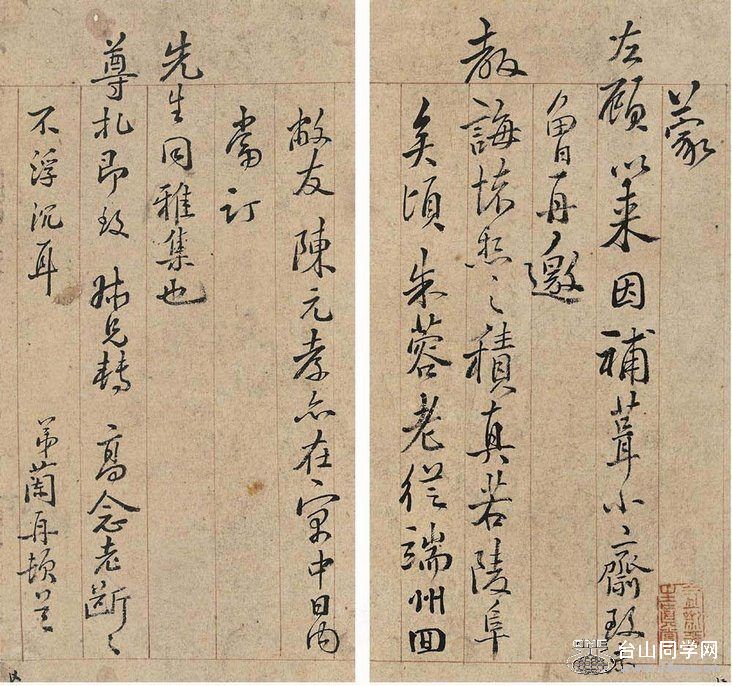 蒙
左顧以來因補葺小齋致不
曾再邀
教誨懷愁之積真若陵阜
矣頃朱蓉老從端州回
敝友陳元孝亦在寓中日內
當訂
先生同雅集也
尊札即致 兄轉高念老斷〻
不浮沉耳 弟蘭再頓首
台山同学网